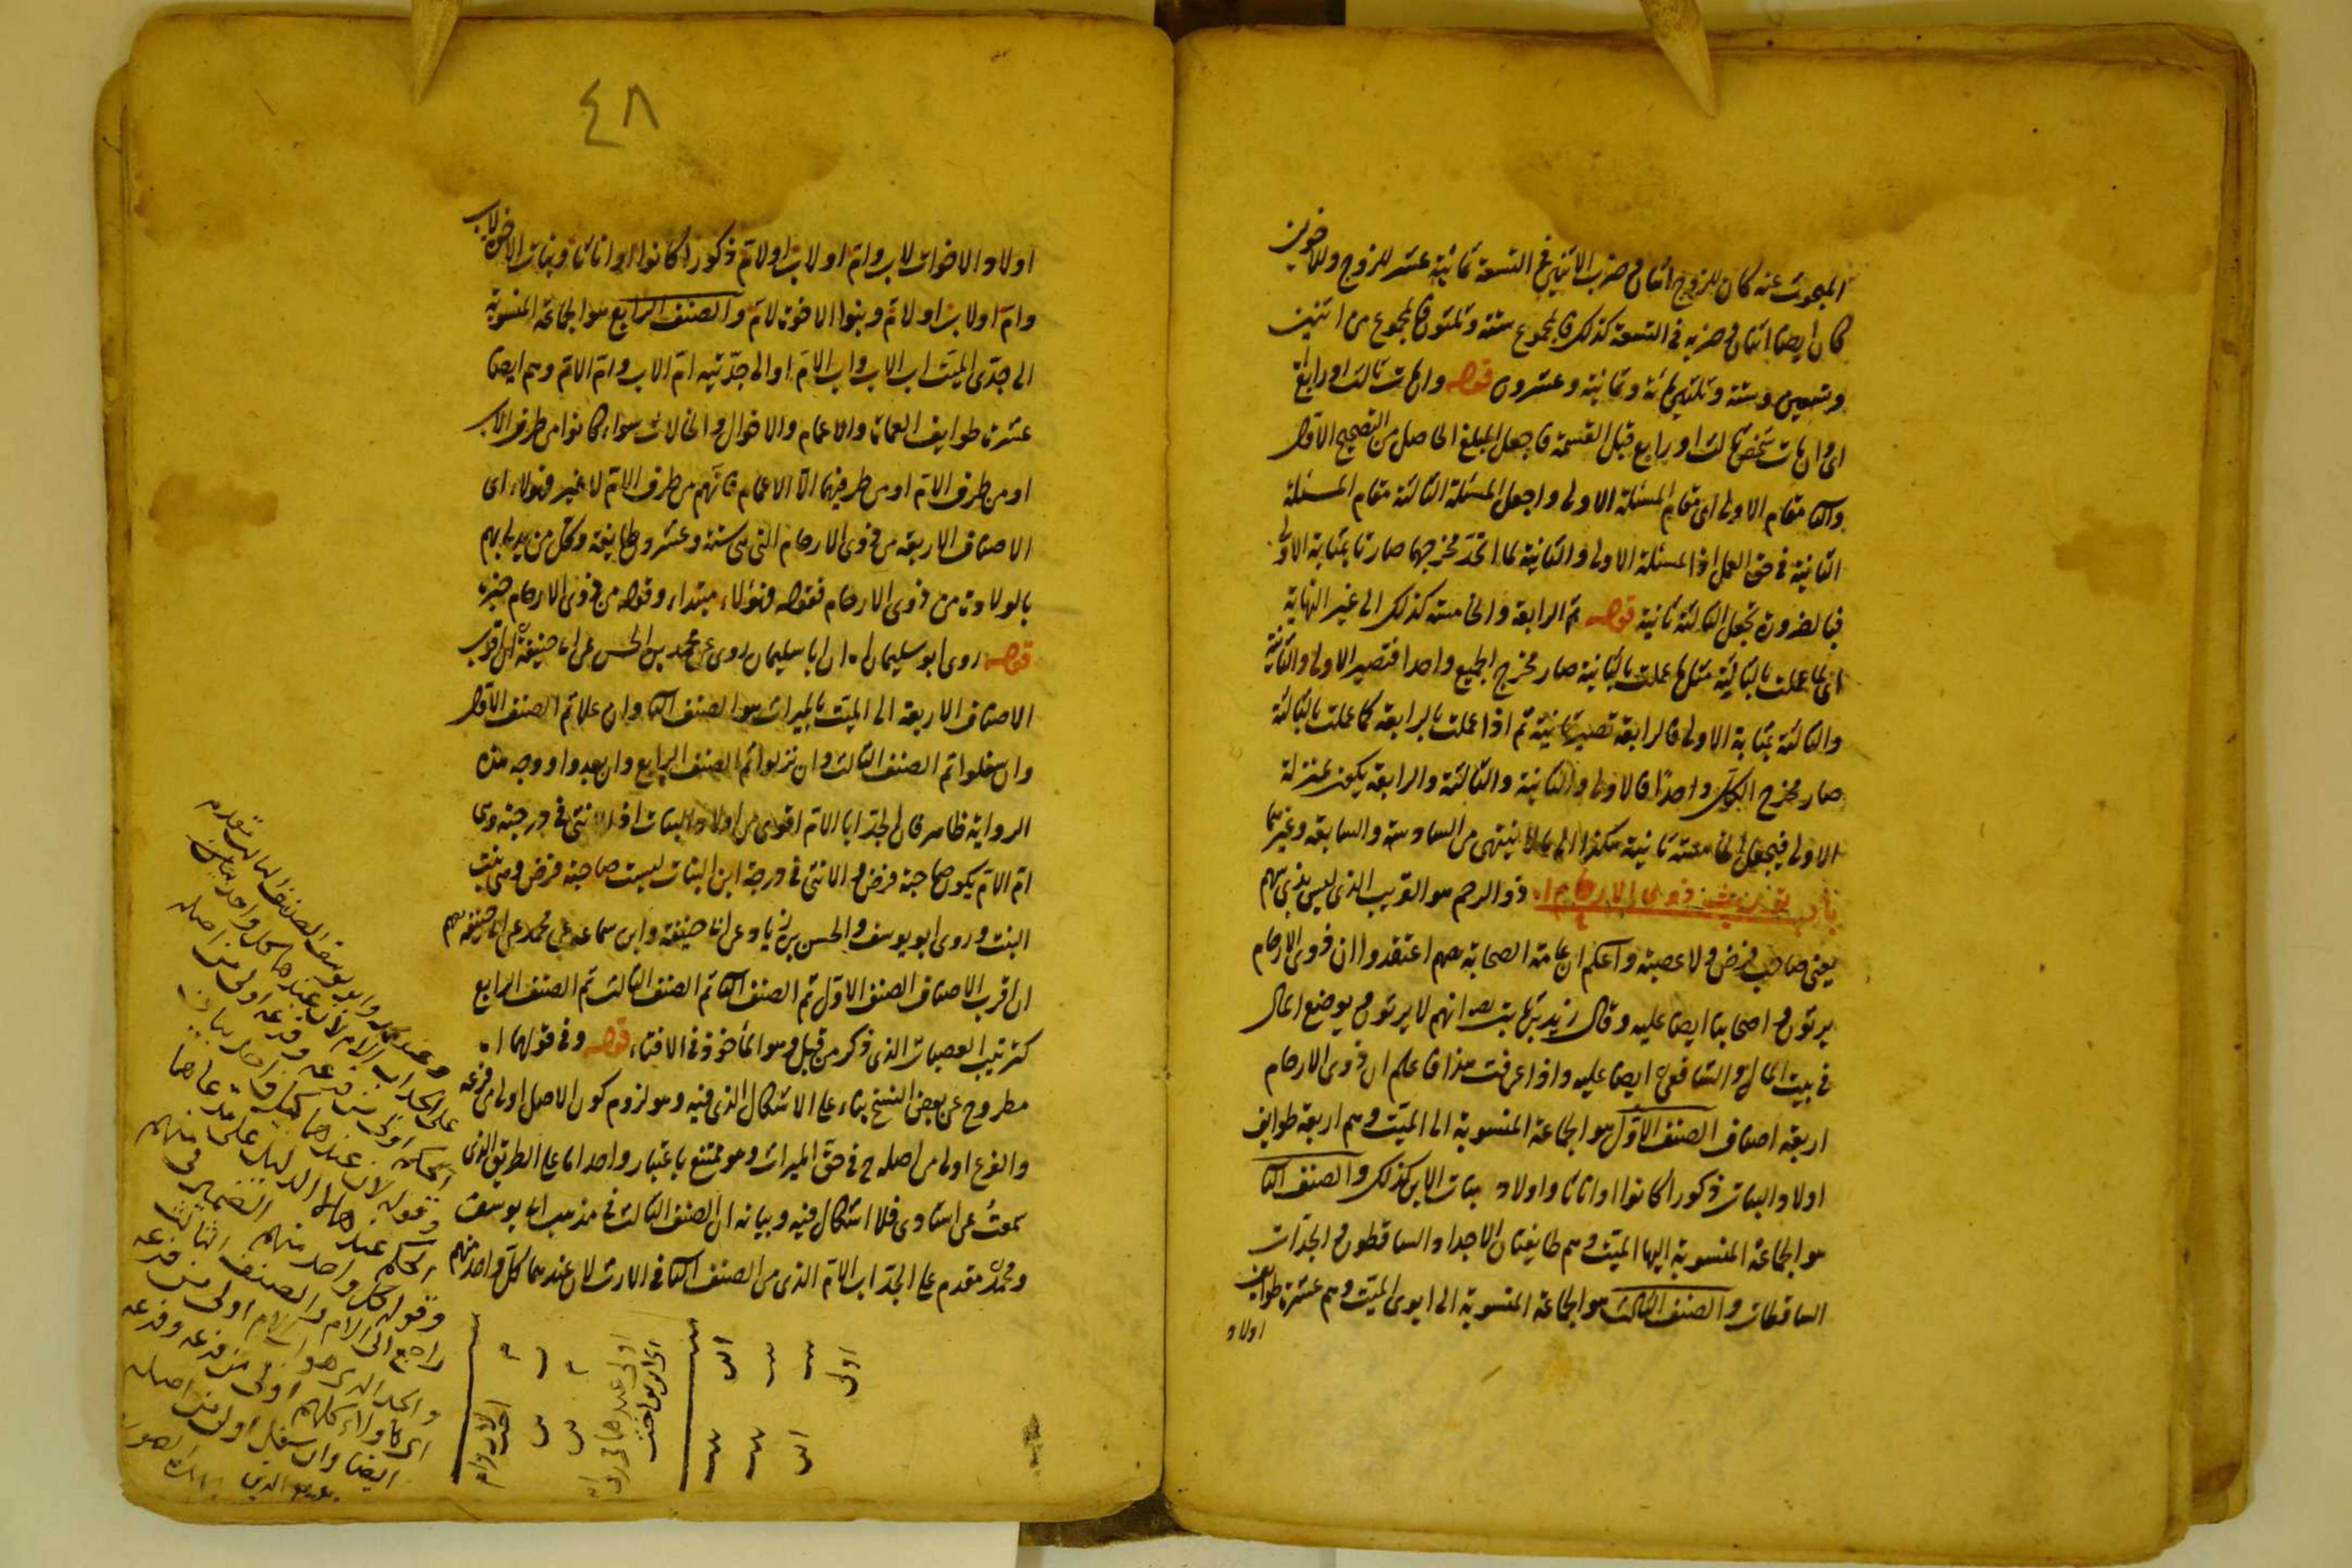 المبحوث عنه كان للزوج اثنان في ضرب الاثنين في التسعة ثمانية عشر للزوج وللاخوين
كان ايضا اثنان في ضربه في التسعة كذلك فالمجموع ستة وثلثون فالمجموع من اثنين
وتسعين وستة وثلثين مائة وثمانية وعشرون قوله وان مات ثالث او رابع
اى وان مات شخص ثالث او رابع قبل القسمة فاجعل المبلغ الحاصل من التصحيح الاول
والثا مقام الاولى اى مقام المسئلة الاولى واجعل المسئلة الثالثة مقام المسئلة
الثانية في حق العمل اذ المسئلة الاولى والثانية لما اتحد مخرجهما صارتا بمثابة الاولى
فبالضرورة تجعل الثالثة ثانية قوله ثم الرابعة والخامسة كذلك الى غير النهاية
اى لما عملت بالثالثة مثل ما عملت بالثانية صار مخرج الجميع واحدا فتصير الاولى والثانية
والثالثة بمثابة الاولى فالرابعة تصير ثانية ثم اذا عملت بالرابعة كما عملت بالثالثة
صار مخرج الكل واحدا فالاولى والثانية والثالثة والرابعة يكون بمنزلة
الاولى فيجعل الخامسة ثانية هكذا الى ما لا ينتهى من السادسة والسابعة وغيرهما
باب توريث ذوى الارحام ا. ذو الرحم هو القريب الذى ليس بذى سهم
يعنى صاحب فرض ولا عصبة واعلم ان عامة الصحابة رضهم اعتقدوا ان ذوى الارحام
يرثون واصحابنا ايضا عليه وقال زيد بن ثابت رضه انهم لا يرثون ويوضع المال
في بيت المال والشافعى ايضا عليه واذا عرفت هذا فاعلم ان ذوى الارحام
اربعة اصناف الصنف الاول هو الجماعة المنسوبة الى الميت وهم اربعة طوايف
اولاد البنات ذكورا كانوا او اناثا واولاد بنات الابن كذلك والصنف الثا
هو الجماعة المنسوبة اليها الميت وهم طايفتان الاجداد الساقطون والجدات
الساقطات والصنف الثالث هو الجماعة المنسوبة الى ابوى الميت وهم عشرة طوايف
اولاد
٤٨
اولاد الاخوات لاب وام او لاب او لام ذكورا كانوا او اناثا وبنات الاخوة لاب
وام او لاب او لام وبنوا الاخوة لام والصنف الرابع هو الجماعة المنسوبة
الى جدى الميت اب الاب واب الام او الى جدتيه ام الاب وام الام وهم ايضا
عشرة طوايف العمات والاعمام والاخوال والخالات سواء كانوا من طرف الاب
او من طرف الام او من طرفيهما الا الاعمام فانهم من طرف الام لا غير فهولاء اى
الاصناف الاربعة من ذوى الارحام التى هى ستة وعشرون طايفة وكل من يدلى بهم
بالولادة من ذوى الارحام فقوله فهؤلاء مبتداء وقوله من ذوى الارحام خبره
قوله روى ابو سليمان ا. ان ابا سليمان روى عن محمد بن الحسن عن ابى حنيفة ان اقرب
الاصناف الاربعة الى الميت بالميراث هو الصنف الثا وان علا ثم الصنف الاول
وان سفلوا ثم الصنف الثالث وان نزلوا ثم الصنف الرابع وان بعدوا ووجه هذه
الرواية ظاهر فان الجد ابا الام اقوى من اولاد البنات اذ الانثى في درجته وهى
ام الام يكون صاحبة فرض والانثى في درجة ابن البنات ليست صاحبة فرض وهى بنت
البنت وروى ابو يوسف والحسن بن زياد عن ابى حنيفة وابن سماعه عن محمد عن ابى حنيفة رضهم
ان اقرب الاصناف الصنف الاول ثم الصنف الثا ثم الصنف الثالث ثم الصنف الرابع
كترتيب العصبات الذى ذكر من قبل وهو المأخوذ في الافتاء قوله وفي قولهما ا.
مطروح عن بعض النسخ بناء على الاشكال الذى فيه وهو لزوم كون الاصل اولى من فرعه
والفرع اولى من اصله ح في حق الميراث وهو ممتنع باعتبار واحد اما على الطريق الذى
سمعت عن استاذى فلا اشكال فيه وبيانه ان الصنف الثالث في مذهب ابى يوسف
ومحمد مقدم على الجد اب الام الذى من الصنف الثا في الارث لان عندهما كل واحد منهم
وعند محمد وابو يوسف الصنف الثالث مقدم
على الجد اب الام لان عندهما كل واحد
اولى من فرعه وفرعه اولى من اصله
وقوله لان عندهما كل واحد
الحكم عندهما الدليل على مدعاهما
وقوله كل واحد منهم الضمير في منهم
راجع الى الام والصنف الثالث
والجد الذى هو اب الام اولى من فرعه
اولى من فرعه وفرعه
ايضا وان سفل اولى من اصله